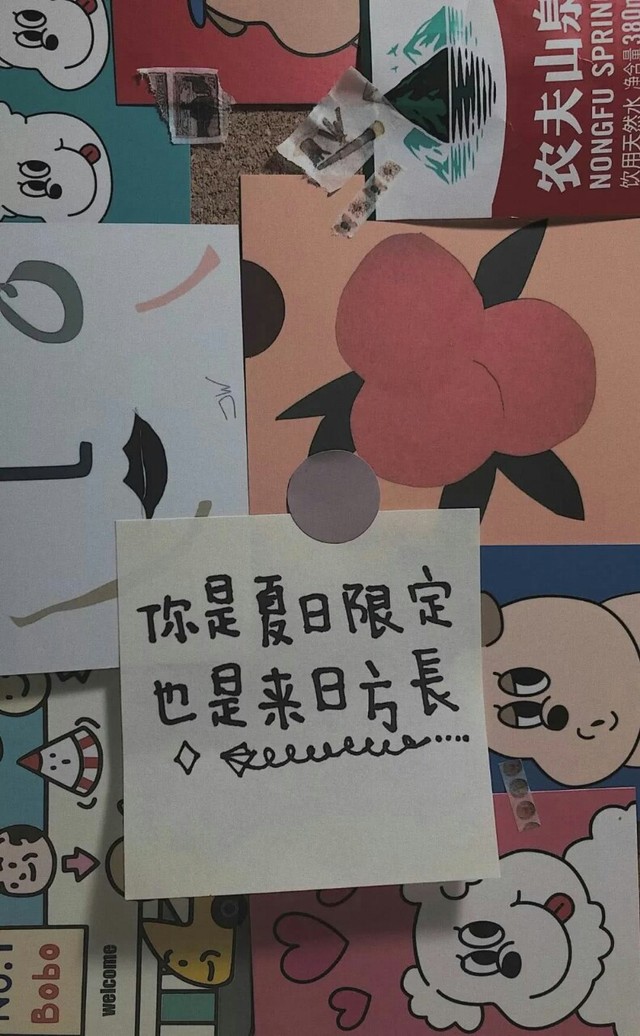 农夫山泉
NONGFU SPRIN
饮用天然水 净含量380m
你是夏日限定
也是来日方長
NO.1
Bobo
welcome